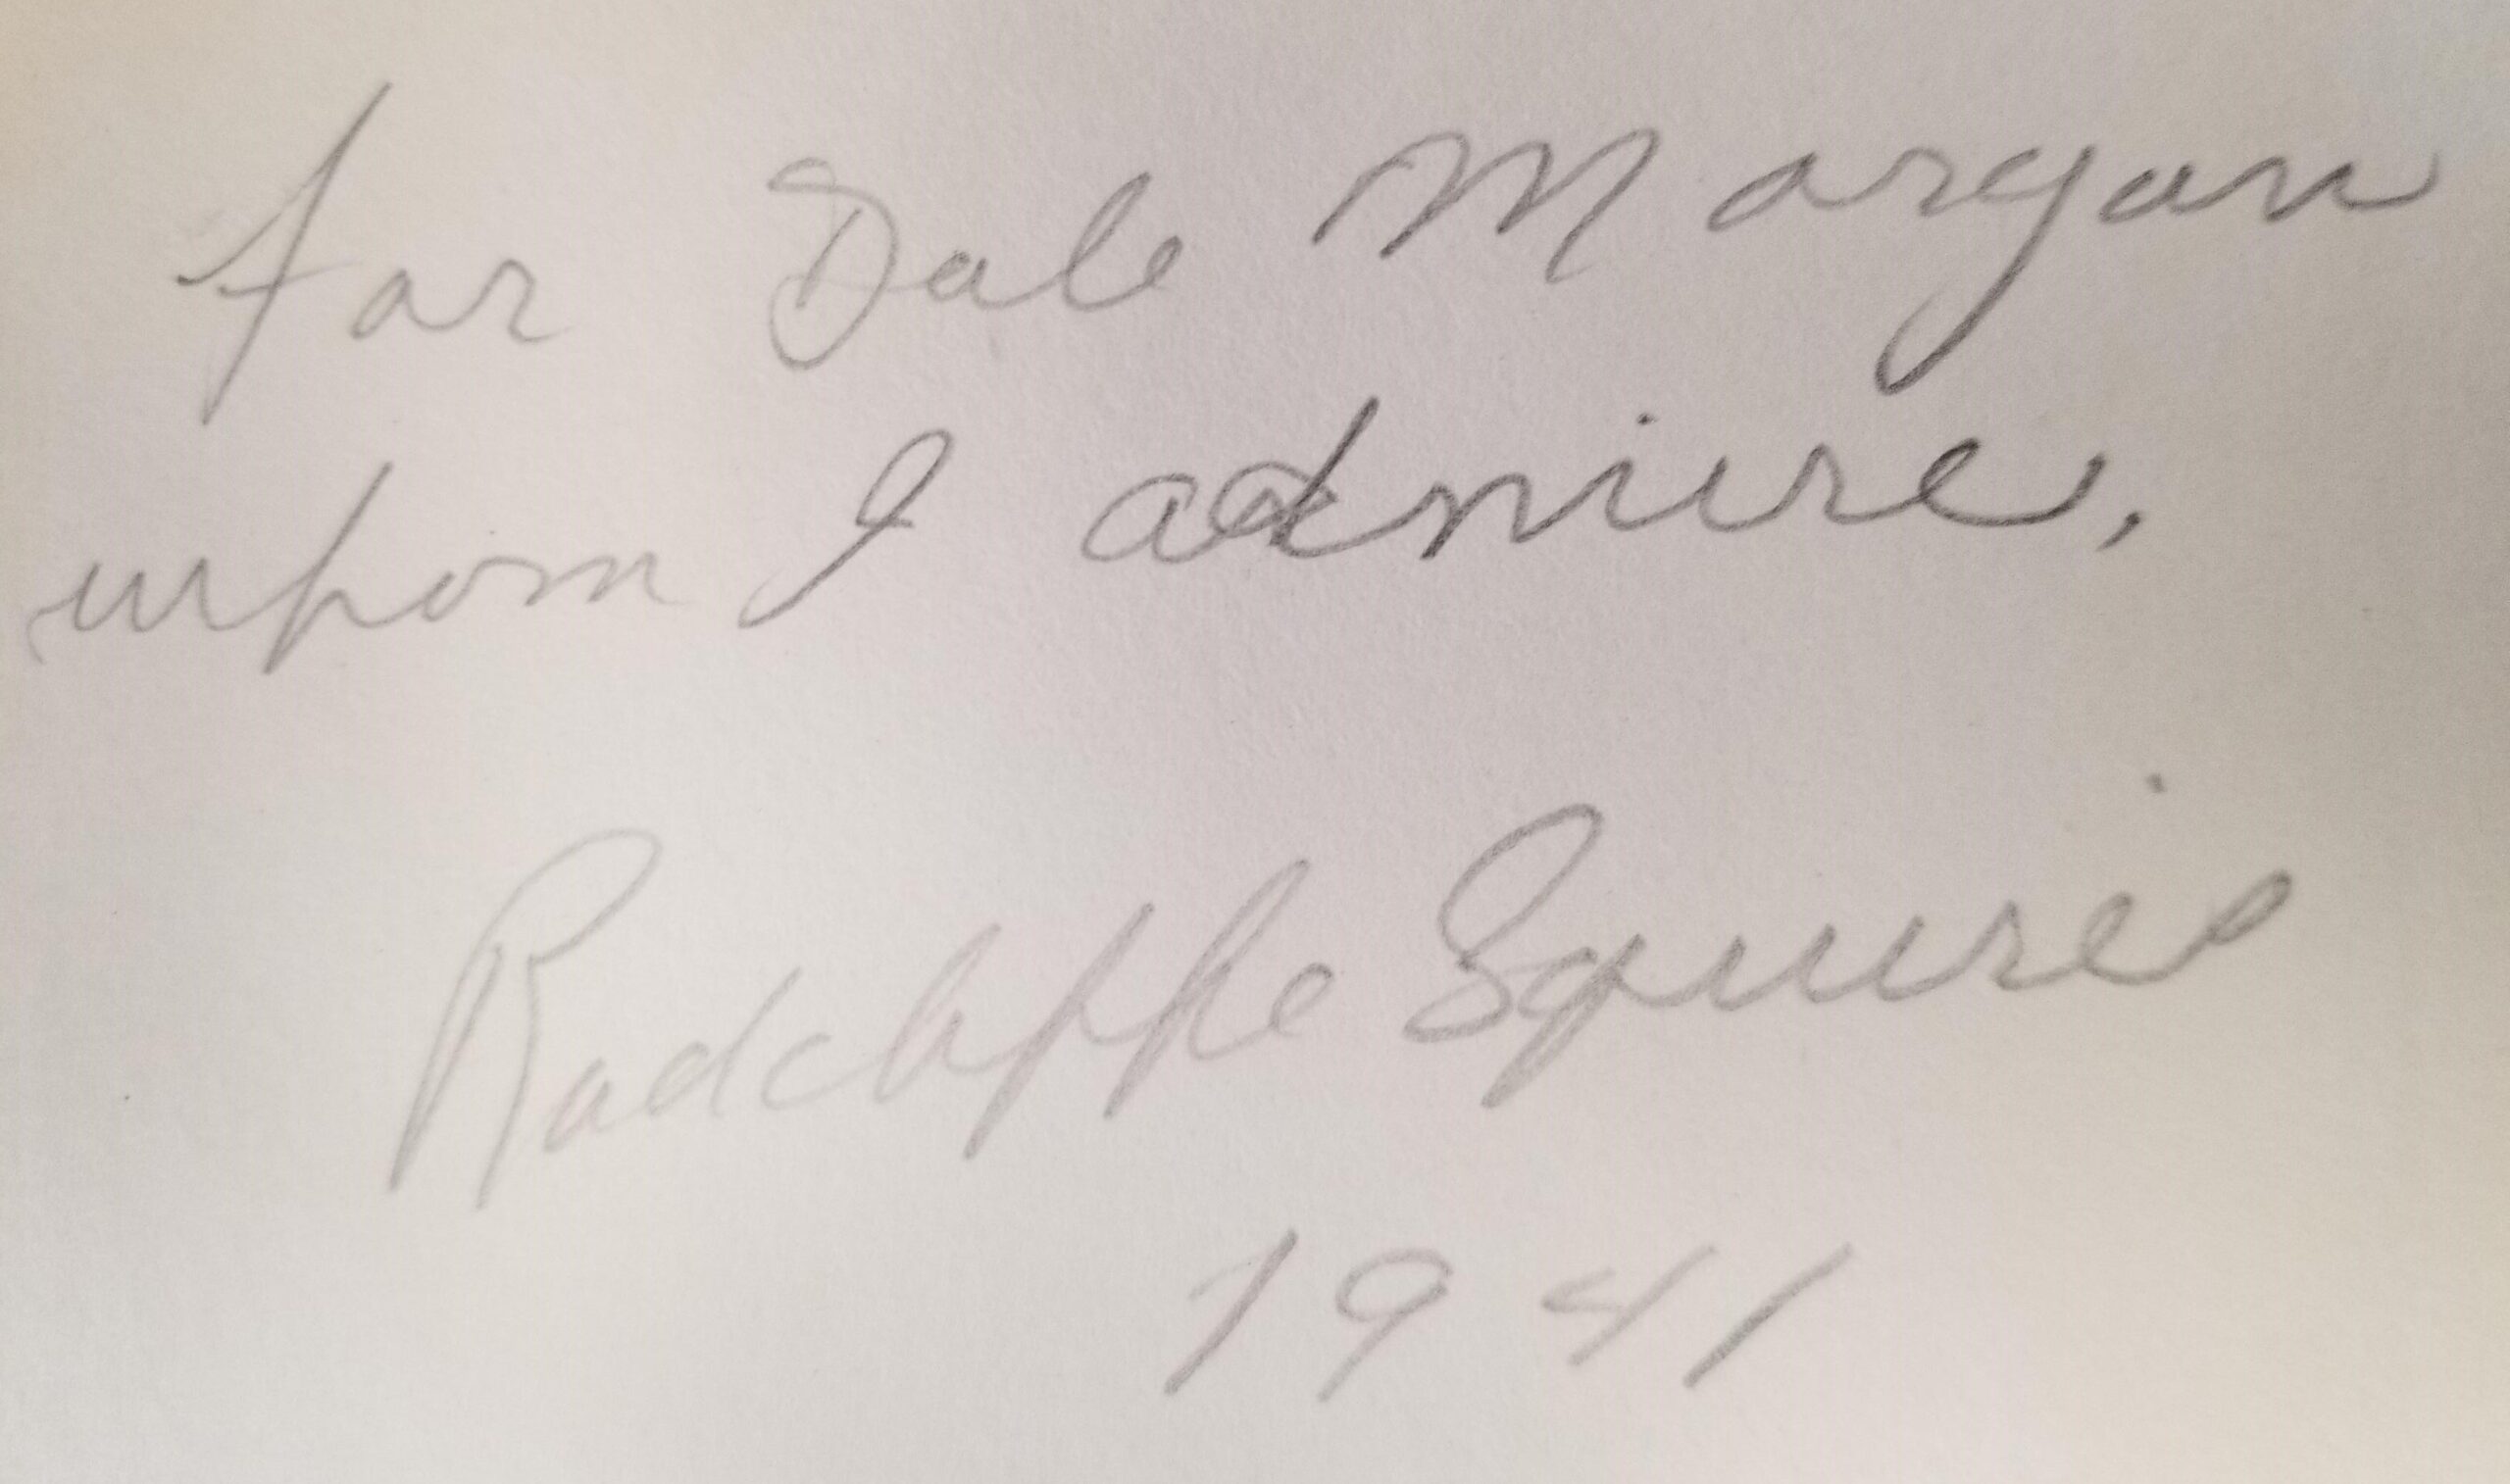 For Dale Morgan
whom I admire,
Radcliffe Squires
1941